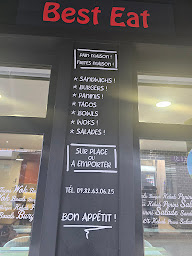 Best Eat
PAIN MAISON !
FRITES MAISON !
★ SANDWICHS !
★ BURGERS !
★ PANINIS !
★ TACOS
★ BOWLS
★ WOKS !
★ SALADES !
SUR PLACE
OU
À EMPORTER
TÉL. 09.82.63.06.25
BON APPÉTIT !